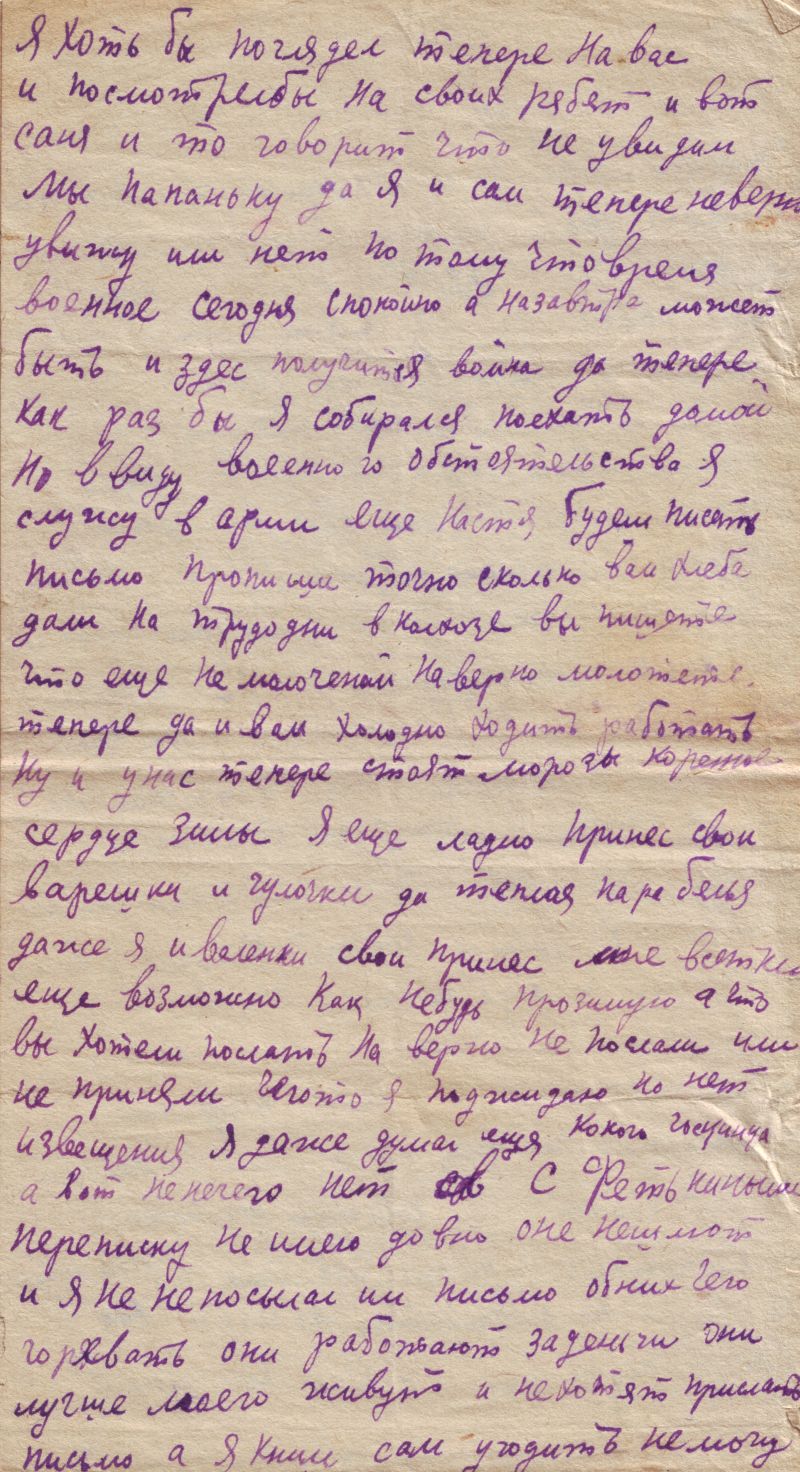 Я хоть бы поглядел тепере на вас
и посмотрелбы на своих рябят и вот
саня и то говорит что не увидим
мы папаньку да я и сам тепере неверно
увижу или нет по тому что время
военное сегодня спокойно а назавтра может
быть и здес получится война да тепере
как раз бы я собирался поехать домой
но ввиду военного обстоятельства я
служу в арми еще Настя будем писать
письмо пропиши точно сколько вам хлеба
дали на трудодни в колхозе вы пишете
что еще не молоченой наверно молотете
тепере да и вам холодно ходить работать
ну и у нас тепере стоят морозы
сердце зимы Я еще ладно принес свои
варешки и чулочки да теплая пара белья
даже я и валенки свои принес мне всетки
еще возможно как небудь прозимую а что
вы хотели послать на верно не послали или
не приняли чегото я поджидаю но нет
извещения я даже думал еще кокого гостинца
а вот не нечего нет с
переписку не имею довно оне нешлют
и я не непосылал им письмо обних чего
горевать они работают заденьги они
лучше моего живут и нехотят прислать
письмо а я кним сам угодить не могу